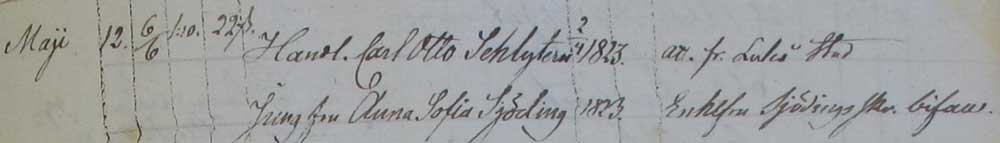 Maji 12. 6/6 1:10. 22 Handl. Carl Otto Schlytern 2/4 1823. att. fr. Luleå Stad
Jungfru Anna Sofia Sjöding 1823. Enkefru Sjödings skr. bifall.